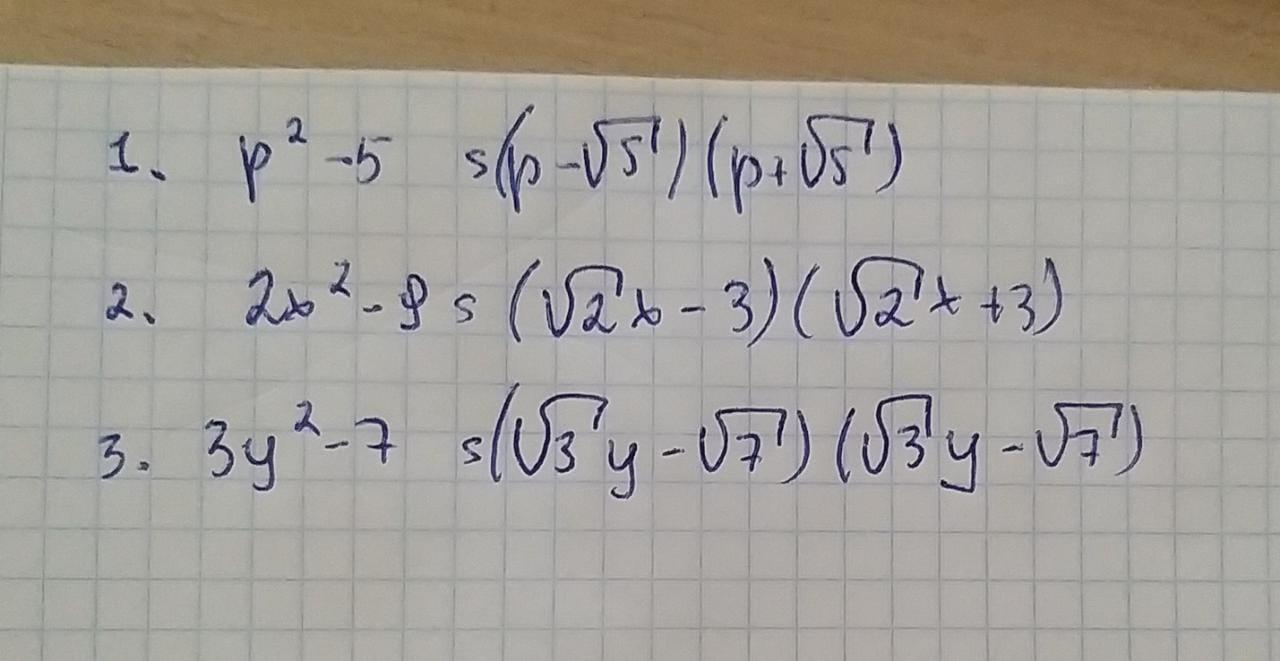 1. p² -5 =(p-√5)(p+√5)
2. 2x² - 9 = (√2x - 3)(√2x +3)
3. 3y² -7 =(√3y -√7)(√3y -√7)